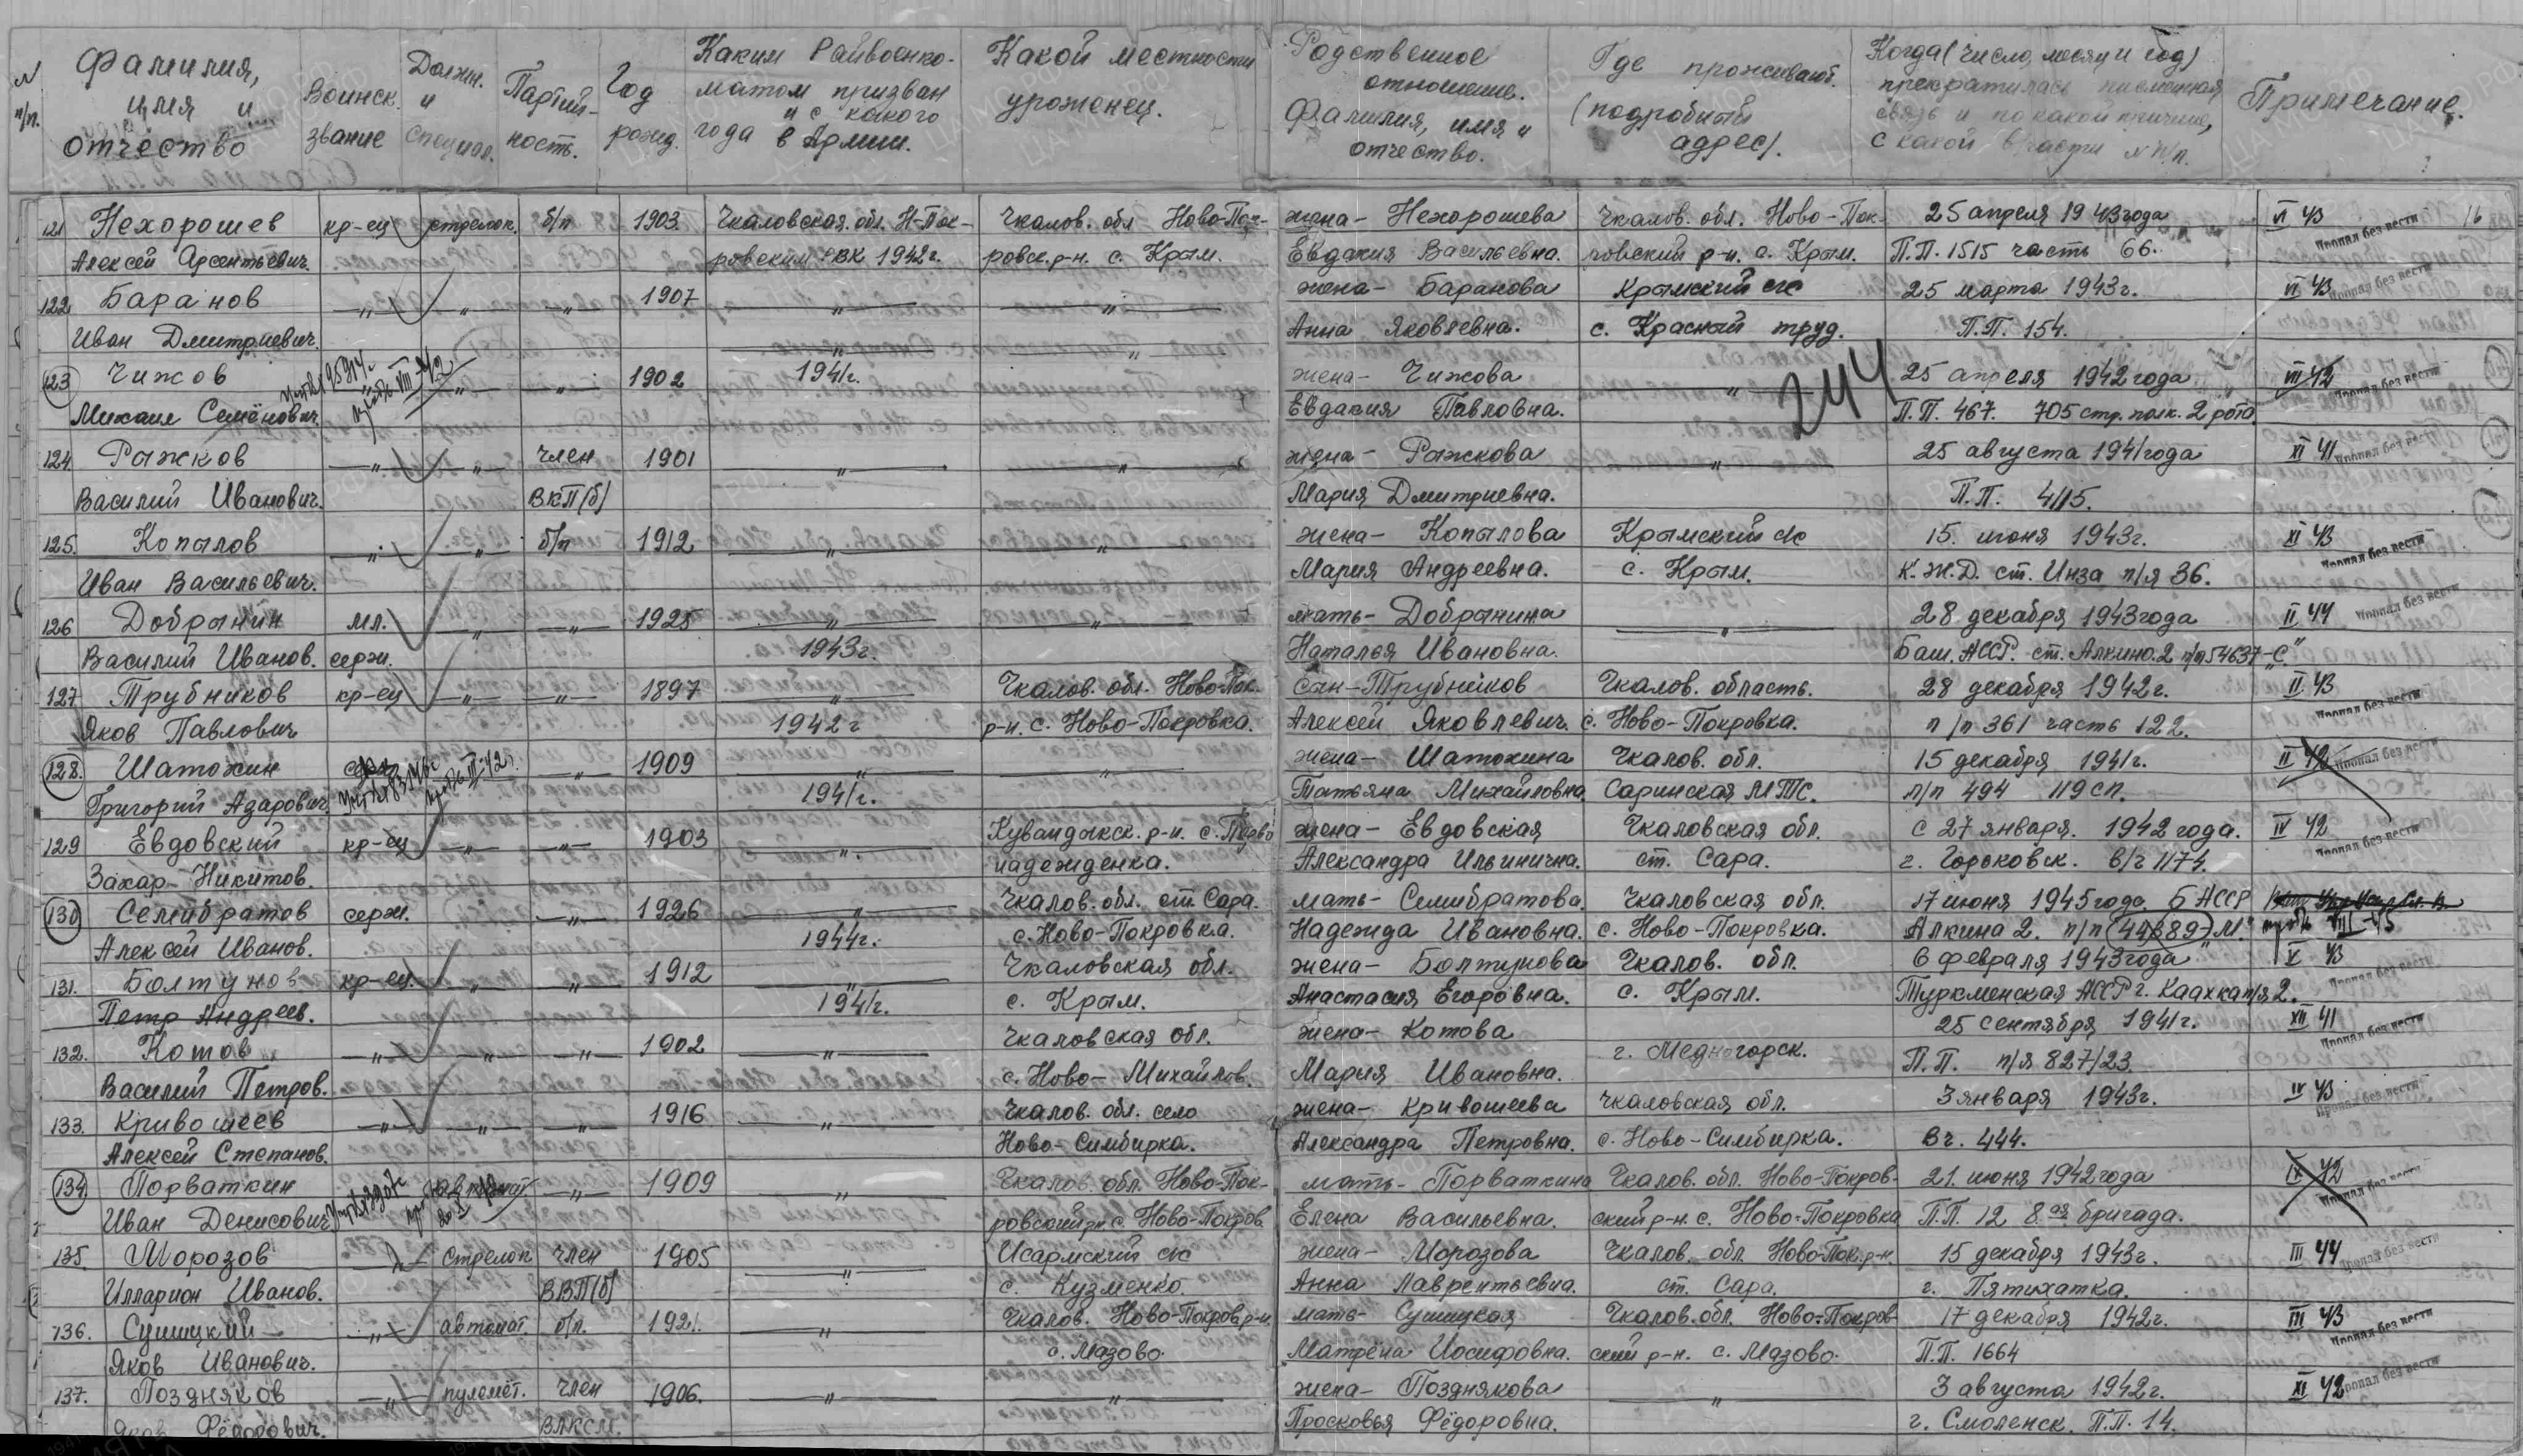 N п/п. Фамилия, имя и отчество
Воинск. звание
Должн. и специал.
Партий-ность.
Год рожд.
Каким Райвоенко-матом призван и с какого года в Армии.
Какой местности уроженец.
Родственное отношение. Фамилия, имя и отчество.
Где проживают. (подробный адрес).
Когда (число, месяц и год) прекратилась письменная связь и по какой причине, с какой в/части N п/п.
Примечание.
121 Нехорошев кр-ец стрелок. б/п 1903. Чкаловская. обл. Н-Пок- Чкалов. обл Ново-Пок- жена - Нехорошева Чкалов. обл. Ново-Пок- 25 апреля 1943 года VI 43 Пропал без вести 16
Алексей Арсентьевич. ровским РВК 1942г. ровск. р-н. с. Крым. Евдакия Васильевна. ровский р-н. с. Крым. П.П. 1515 часть 66.
122 Баранов -"- -"- -"- 1907 -"- -"- жена - Баранова Крымский с/с 25 марта 1943г. VI 43 Пропал без вести
Иван Дмитриевич. -"- -"- Анна Яковлевна. с. Красный труд. П.П. 154.
123 Чижов " -"- 1902 1941г. жена - Чижова -"- 244 25 апреля 1942 года VIII 42 Пропал без вести
Михаил Семёнович. Евдакия Павловна. П.П. 467. 705 стр. полк. 2 рота
124 Рыжков -"- -"- член 1901 -"- -"- жена - Рыжкова -"- 25 августа 1941 года XI 41 Пропал без вести
Василий Иванович. ВКП(б) Мария Дмитриевна. П.П. 4115.
125. Копылов -"- -"- б/п 1912 -"- -"- жена - Копылова Крымский с/с 15. июня 1943г. XI 43 Пропал без вести
Иван Васильевич. Мария Андреевна. с. Крым. К.Ж.Д. ст. Инза п/я 36.
126 Добрынин мл. -"- -"- 1925 -"- -"- мать - Добрынина -"- 28 декабря 1943 года II 44 Пропал без вести
Василий Иванов. серж. 1943г. Наталья Ивановна. Баш. АССР. ст. Алкино. 2 п/п 54637-"С"
127. Трубников кр-ец -"- -"- 1897 -"- Чкалов. обл. Ново-Пок. сын - Трубников Чкалов. область. 28 декабря 1942г. II 43 Пропал без вести
Яков Павлович 1942г р-н. с. Ново-Покровка. Алексей Яковлевич. с. Ново-Покровка. п/п 361 часть 122.
128. Шатохин -"- 1909 -"- -"- жена - Шатохина Чкалов. обл. 15 декабря 1941г. II 42 Пропал без вести
Григорий Азарович. 1941г. Татьяна Михайловна. Саринская МТС. п/п 494 119 сп.
129 Евдовский кр-ец -"- -"- 1903 -"- Кувандыкск. р-н. с. Перво жена - Евдовская Чкаловская обл. с 27 января. 1942 года. IV 42 Пропал без вести
Захар Никитов. надежденка. Александра Ильинична. ст. Сара. г. Горьковск. в/г 1174.
130 Семибратов серж. -"- 1926 -"- Чкалов. обл. ст. Сара. мать - Семибратова. Чкаловская обл. 17 июня 1945 года. БАССР
Алексей Иванов. 1944г. с. Ново-Покровка. Надежда Ивановна. с. Ново-Покровка. Алкина 2. п/п (44889) "М." VIII-45
131. Болтунов кр-ец. -"- -"- 1912 -"- Чкаловская обл. жена - Болтунова Чкалов. обл. 6 февраля 1943 года V 43 Пропал без вести
Петр Андреев. 1941г. с. Крым. Анастасия Егоровна. с. Крым. Туркменская АССР г. Каахка п/я 2.
132. Котов -"- -"- -"- 1902 -"- Чкаловская обл. жена - Котова г. Медногорск. 25 сентября 1941г. XII 41 Пропал без вести
Василий Петров. с. Ново-Михайлов. Мария Ивановна. П.П. п/я 827/23.
133. Кривошеев -"- -"- -"- 1916 -"- Чкалов. обл. село жена - Кривошеева Чкаловская обл. 3 января 1943г. IV 43 Пропал без вести
Алексей Степанов. Ново-Симбирка. Александра Петровна. с. Ново-Симбирка. В г. 444.
134 Порваткин автомат. -"- 1909 -"- Чкалов. обл. Ново-Пок- мать - Порваткина Чкалов. обл. Ново-Покров- 21. июня 1942 года IX 42 Пропал без вести
Иван Денисович ровский р-н. с. Ново-Покров. Елена Васильевна. ский р-н. с. Ново-Покровка П.П. 12 8ая бригада.
135. Морозов -"- Стрелок член 1905 -"- Исармский с/с жена - Морозова Чкалов. обл. Ново-Пок. р-н. 15 декабря 1943г. III 44 Пропал без вести
Илларион Иванов. ВВП(б) с. Кузменко. Анна Лаврентьевна. ст. Сара. г. Пятихатка.
136. Сушицкий -"- автомат. б/п. 1921. -"- Чкалов. Ново-Покров. р-н. мать - Сушицкая Чкалов. обл. Ново-Покров- 17 декабря 1942г. III 43 Пропал без вести
Яков Иванович. с. Мазово. Матрёна Иосифовна. ский р-н. с. Мазово. П.П. 1664
137. Поздняков -"- пулемёт. член 1906. -"- -"- жена - Позднякова -"- 3 августа 1942г. XI 42 Пропал без вести
Яков Фёдорович. ВЛКСМ. Просковья Фёдоровна. г. Смоленск. П.П. 14.